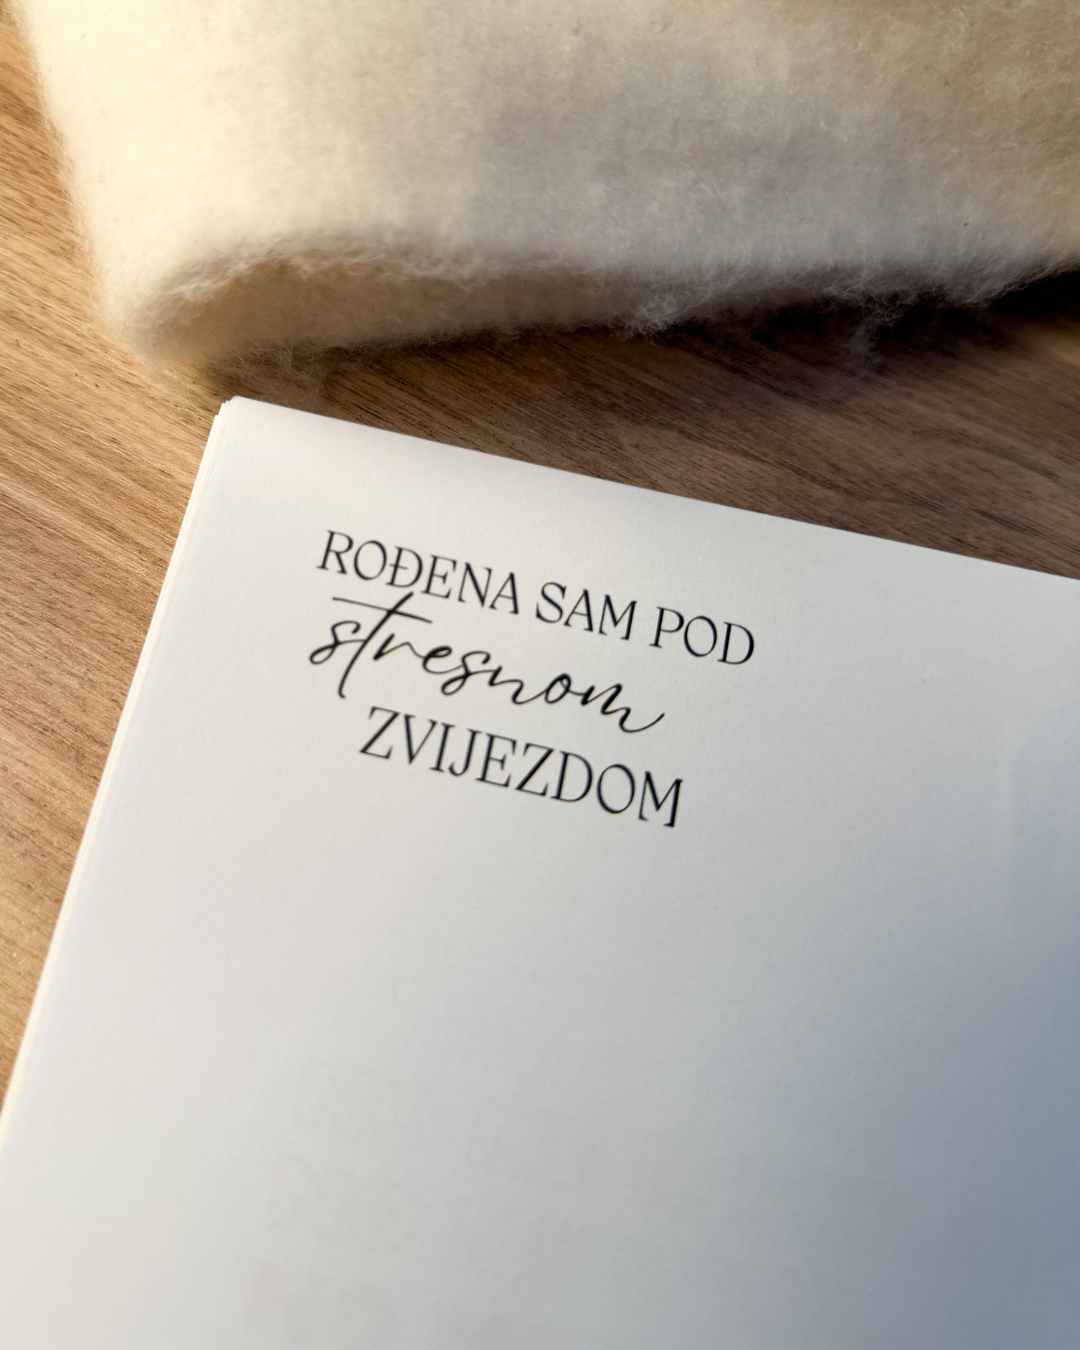 ROĐENA SAM POD
stresnom
ZVIJEZDOM